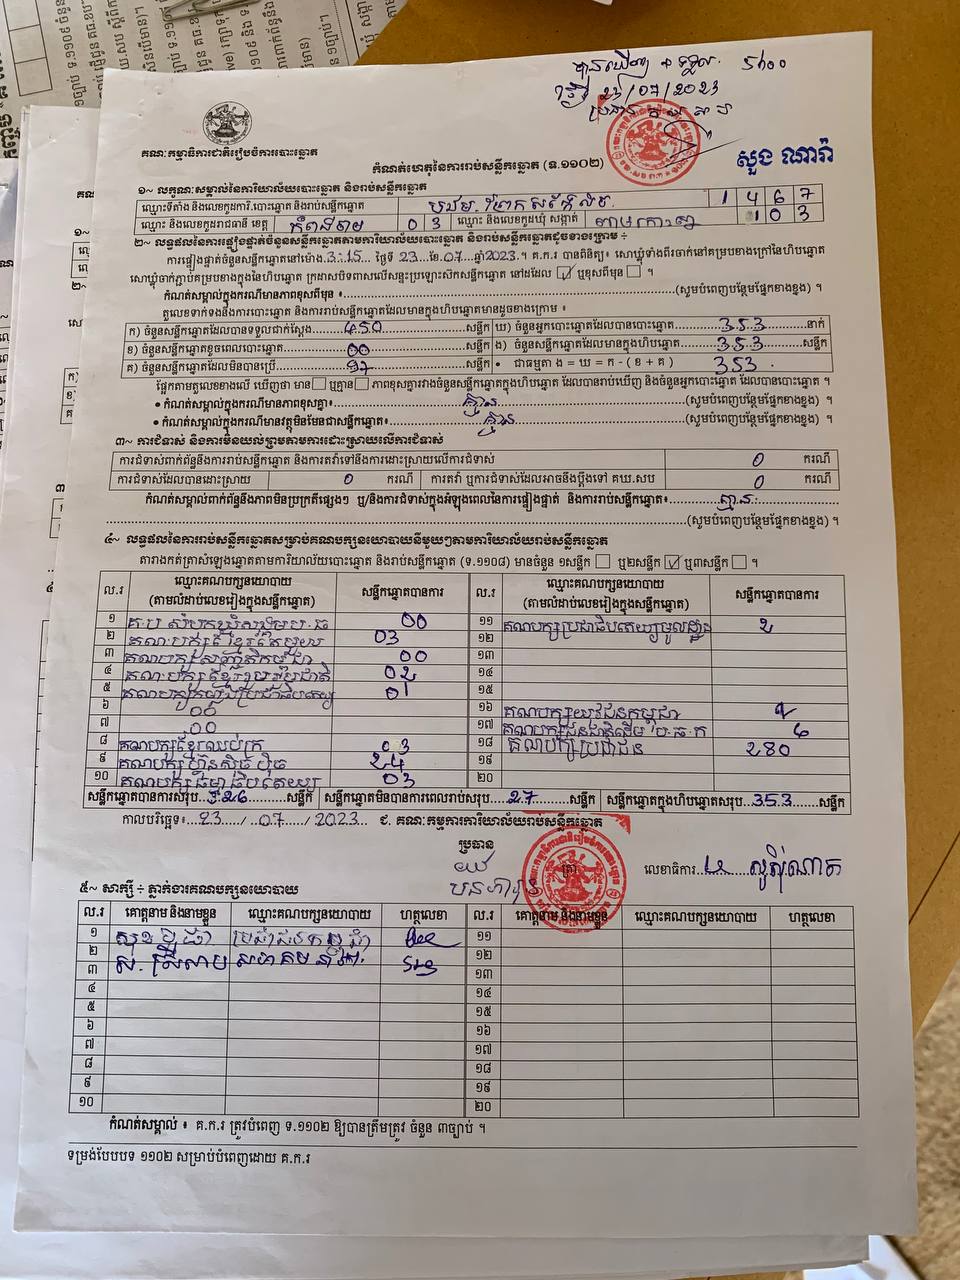 បានឃើញ
23/07/2023
សួង ណារ៉ា
គណៈកម្មាធិការជាតិរៀបចំការបោះឆ្នោត
កំណត់ហេតុនៃការរាប់សន្លឹកឆ្នោត (ទ.១១០២)
១~ លក្ខណៈសម្គាល់នៃការិយាល័យបោះឆ្នោត និងរាប់សន្លឹកឆ្នោត
ឈ្មោះទីតាំង និងលេខកូដការិ.បោះឆ្នោត និងរាប់សន្លឹកឆ្នោត 1 4 6 7
ឈ្មោះ និងលេខកូដរាជធានី ខេត្ត កំពង់ចាម 0 3 ឈ្មោះ និងលេខកូដឃុំ សង្កាត់ 1 0 3
២~ លទ្ធផលនៃការផ្ទៀងផ្ទាត់ចំនួនសន្លឹកឆ្នោតតាមការិយាល័យបោះឆ្នោត និងរាប់សន្លឹកឆ្នោតដូចខាងក្រោម ៖
ការផ្ទៀងផ្ទាត់ចំនួនសន្លឹកឆ្នោតនៅម៉ោង.3:15 ថ្ងៃទី 23.ខែ.07.ឆ្នាំ2023.។ គ.ក.រ បានពិនិត្យ៖ សោឃ្លុំទាំងពីរចាក់នៅគម្របខាងក្រៅនៃហិបឆ្នោត
សោឃ្លុំចាក់ភ្ជាប់គម្របខាងក្នុងនៃហិបឆ្នោត ក្រដាសបិទពាសលើសន្ទះប្រឡោះស៊កសន្លឹកឆ្នោត នៅដដែល ☑ ឬខុសពីមុន ☐ ។
កំណត់សម្គាល់ក្នុងករណីមានភាពខុសពីមុន ៖ (សូមបំពេញបន្ថែមផ្នែកខាងខ្នង) ។
តួលេខទាក់ទងនឹងការបោះឆ្នោត និងការរាប់សន្លឹកឆ្នោតដែលមានក្នុងហិបឆ្នោតមានដូចខាងក្រោម ៖
ក) ចំនួនសន្លឹកឆ្នោតដែលបានទទួលជាក់ស្តែង 450 សន្លឹក ឃ) ចំនួនអ្នកបោះឆ្នោតដែលបានបោះឆ្នោត 353 នាក់
ខ) ចំនួនសន្លឹកឆ្នោតខូចពេលបោះឆ្នោត 00 សន្លឹក ង) ចំនួនសន្លឹកឆ្នោតដែលមានក្នុងហិបឆ្នោត 353 សន្លឹក
គ) ចំនួនសន្លឹកឆ្នោតដែលមិនបានប្រើ 97 សន្លឹក • ជាធម្មតា ង = ឃ = ក - ( ខ + គ ) 353
ផ្អែកតាមតួលេខខាងលើ ឃើញថា មាន ☐ ឬគ្មាន ☐ ភាពខុសគ្នារវាងចំនួនសន្លឹកឆ្នោតក្នុងហិបឆ្នោត ដែលបានរាប់ឃើញ និងចំនួនអ្នកបោះឆ្នោត ដែលបានបោះឆ្នោត ។
• កំណត់សម្គាល់ក្នុងករណីមានភាពខុសគ្នា៖ គ្មាន (សូមបំពេញបន្ថែមផ្នែកខាងខ្នង) ។
• កំណត់សម្គាល់ក្នុងករណីមានវត្ថុមិនមែនជាសន្លឹកឆ្នោត៖ គ្មាន (សូមបំពេញបន្ថែមផ្នែកខាងខ្នង) ។
៣~ ការជំទាស់ និងការមិនយល់ព្រមតាមការដោះស្រាយលើការជំទាស់
ការជំទាស់ពាក់ព័ន្ធនឹងការរាប់សន្លឹកឆ្នោត និងការតវ៉ាទៅនឹងការដោះស្រាយលើការជំទាស់ 0 ករណី
ការជំទាស់ដែលបានដោះស្រាយ 0 ករណី ការតវ៉ា ឬការជំទាស់ដែលអាចនឹងប្តឹងទៅ គឃ.សប 0 ករណី
កំណត់សម្គាល់ពាក់ព័ន្ធនឹងភាពមិនប្រក្រតីផ្សេងៗ ឬ/និងការជំទាស់ក្នុងអំឡុងពេលនៃការផ្ទៀងផ្ទាត់ និងការរាប់សន្លឹកឆ្នោត៖ គ្មាន
(សូមបំពេញបន្ថែមផ្នែកខាងខ្នង) ។
៤~ លទ្ធផលនៃការរាប់សន្លឹកឆ្នោតសម្រាប់គណបក្សនយោបាយនីមួយៗតាមការិយាល័យរាប់សន្លឹកឆ្នោត
តារាងកត់ត្រាសំឡេងឆ្នោតតាមការិយាល័យបោះឆ្នោត និងរាប់សន្លឹកឆ្នោត (ទ.១១០៨) មានចំនួន ១សន្លឹក ☐ ឬ២សន្លឹក ☑ ឬ៣សន្លឹក ☐ ។
ល.រ ឈ្មោះគណបក្សនយោបាយ (តាមលំដាប់លេខរៀងក្នុងសន្លឹកឆ្នោត) សន្លឹកឆ្នោតបានការ ល.រ ឈ្មោះគណបក្សនយោបាយ (តាមលំដាប់លេខរៀងក្នុងសន្លឹកឆ្នោត) សន្លឹកឆ្នោតបានការ
១ 00 ១១ គណបក្សប្រជាធិបតេយ្យមូលដ្ឋាន 2
២ គណបក្សខ្មែរតែមួយ 03 ១២
៣ គណបក្សសញ្ជាតិកម្ពុជា 00 ១៣
៤ គណបក្សខ្មែររួបរួមជាតិ 02 ១៤
៥ គណបក្សកម្លាំងប្រជាធិបតេយ្យ 01 ១៥
៦ 00 ១៦ គណបក្សយុវជនកម្ពុជា 2
៧ 00 ១៧ គណបក្សជនជាតិដើម ប.ធ.ក 6
៨ គណបក្សខ្មែរឈប់ក្រ 03 ១៨ គណបក្សប្រជាជន 280
៩ គណបក្សហ្វ៊ុនស៊ិនប៉ិច 24 ១៩
១០ គណបក្សធម្មាធិបតេយ្យ 03 ២០
សន្លឹកឆ្នោតបានការសរុប 326 សន្លឹក សន្លឹកឆ្នោតមិនបានការពេលរាប់សរុប 27 សន្លឹក សន្លឹកឆ្នោតក្នុងហិបឆ្នោតសរុប 353 សន្លឹក
កាលបរិច្ឆេទ៖ 23 / 07 / 2023 ជ. គណៈកម្មការការិយាល័យរាប់សន្លឹកឆ្នោត
ប្រធាន
ត្រា
លេខាធិការ
៥~ សាក្សី ÷ ភ្នាក់ងារគណបក្សនយោបាយ
ល.រ គោត្តនាម និងនាមខ្លួន ឈ្មោះគណបក្សនយោបាយ ហត្ថលេខា ល.រ គោត្តនាម និងនាមខ្លួន ឈ្មោះគណបក្សនយោបាយ ហត្ថលេខា
១ ប្រជាជនកម្ពុជា ១១
២ ១២
៣ ១៣
៤ ១៤
៥ ១៥
៦ ១៦
៧ ១៧
៨ ១៨
៩ ១៩
១០ ២០
កំណត់សម្គាល់ ៖ គ.ក.រ ត្រូវបំពេញ ទ.១១០២ ឱ្យបានត្រឹមត្រូវ ចំនួន ៣ច្បាប់ ។
ទម្រង់បែបបទ ១១០២ សម្រាប់បំពេញដោយ គ.ក.រ